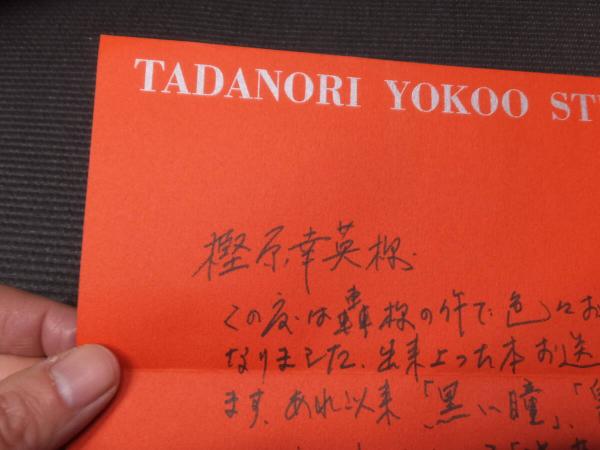 TADANORI YOKOO ST
樫原幸英様
この度は轟様の件で色々お
なりました。出来上った本お送
ます。あれ以来「黒い瞳」、「